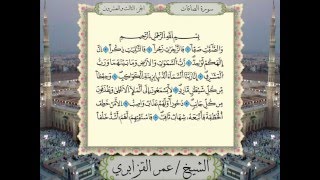 سورة الصافات
الجزء الثالث والعشرون
بِسْمِ اللَّهِ الرَّحْمَٰنِ الرَّحِيمِ
وَالصَّافَّاتِ صَفًّا فَالزَّاجِرَاتِ زَجْرًا فَالتَّالِيَاتِ ذِكْرًا إِنَّ
إِلَٰهَكُمْ لَوَاحِدٌ رَبُّ السَّمَاوَاتِ وَالْأَرْضِ وَمَا بَيْنَهُمَا وَرَبُّ
الْمَشَارِقِ إِنَّا زَيَّنَّا السَّمَاءَ الدُّنْيَا بِزِينَةٍ الْكَوَاكِبِ وَحِفْظًا
مِنْ كُلِّ شَيْطَانٍ مَارِدٍ لَا يَسَّمَّعُونَ إِلَى الْمَلَإِ الْأَعْلَىٰ وَيُقْذَفُونَ
مِنْ كُلِّ جَانِبٍ دُحُورًا وَلَهُمْ عَذَابٌ وَاصِبٌ إِلَّا مَنْ خَطِفَ
الْخَطْفَةَ فَأَتْبَعَهُ شِهَابٌ ثَاقِبٌ فَاسْتَفْتِهِمْ أَهُمْ أَشَدُّ خَلْقًا
الشيخ / عمر القزابري